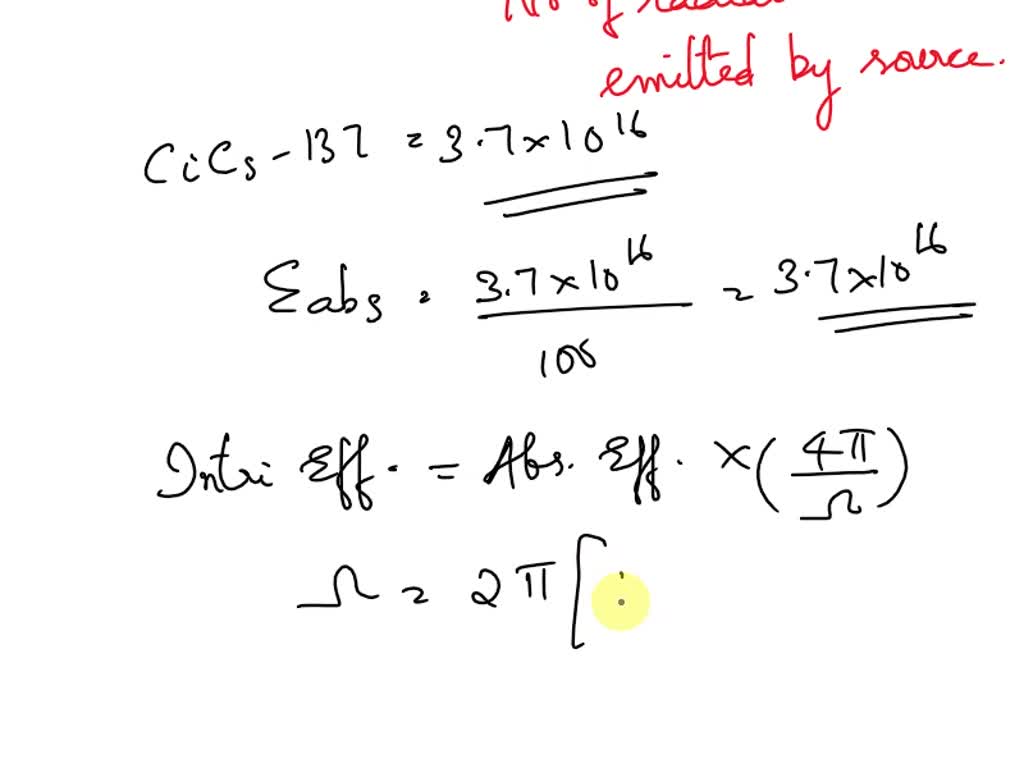 No of
emitted by source.
CiCs-137 = 3.7×10¹⁶
Σabs = 3.7×10¹⁶ / 100 = 3.7×10¹⁶
Intri Eff. = Abs. Eff. × (4π / Ω)
Ω = 2π [